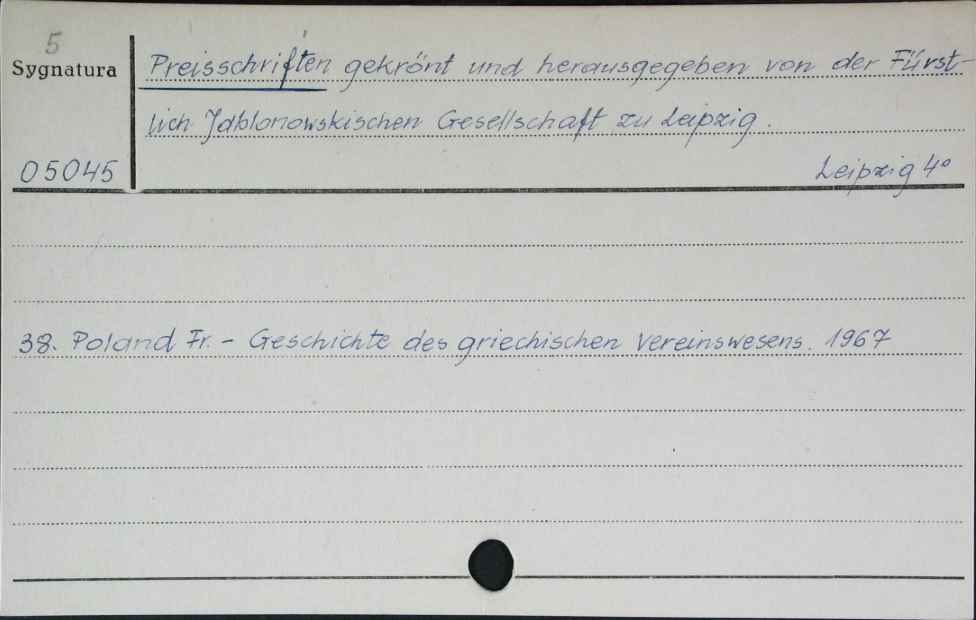 5
Sygnatura
Preisschriften gekrönt und herausgegeben von der Fürst-
lich Jablonowskischen Gesellschaft zu Leipzig.
05045
Leipzig 4°
38. Poland Fr. - Geschichte des griechischen Vereinswesens. 1967